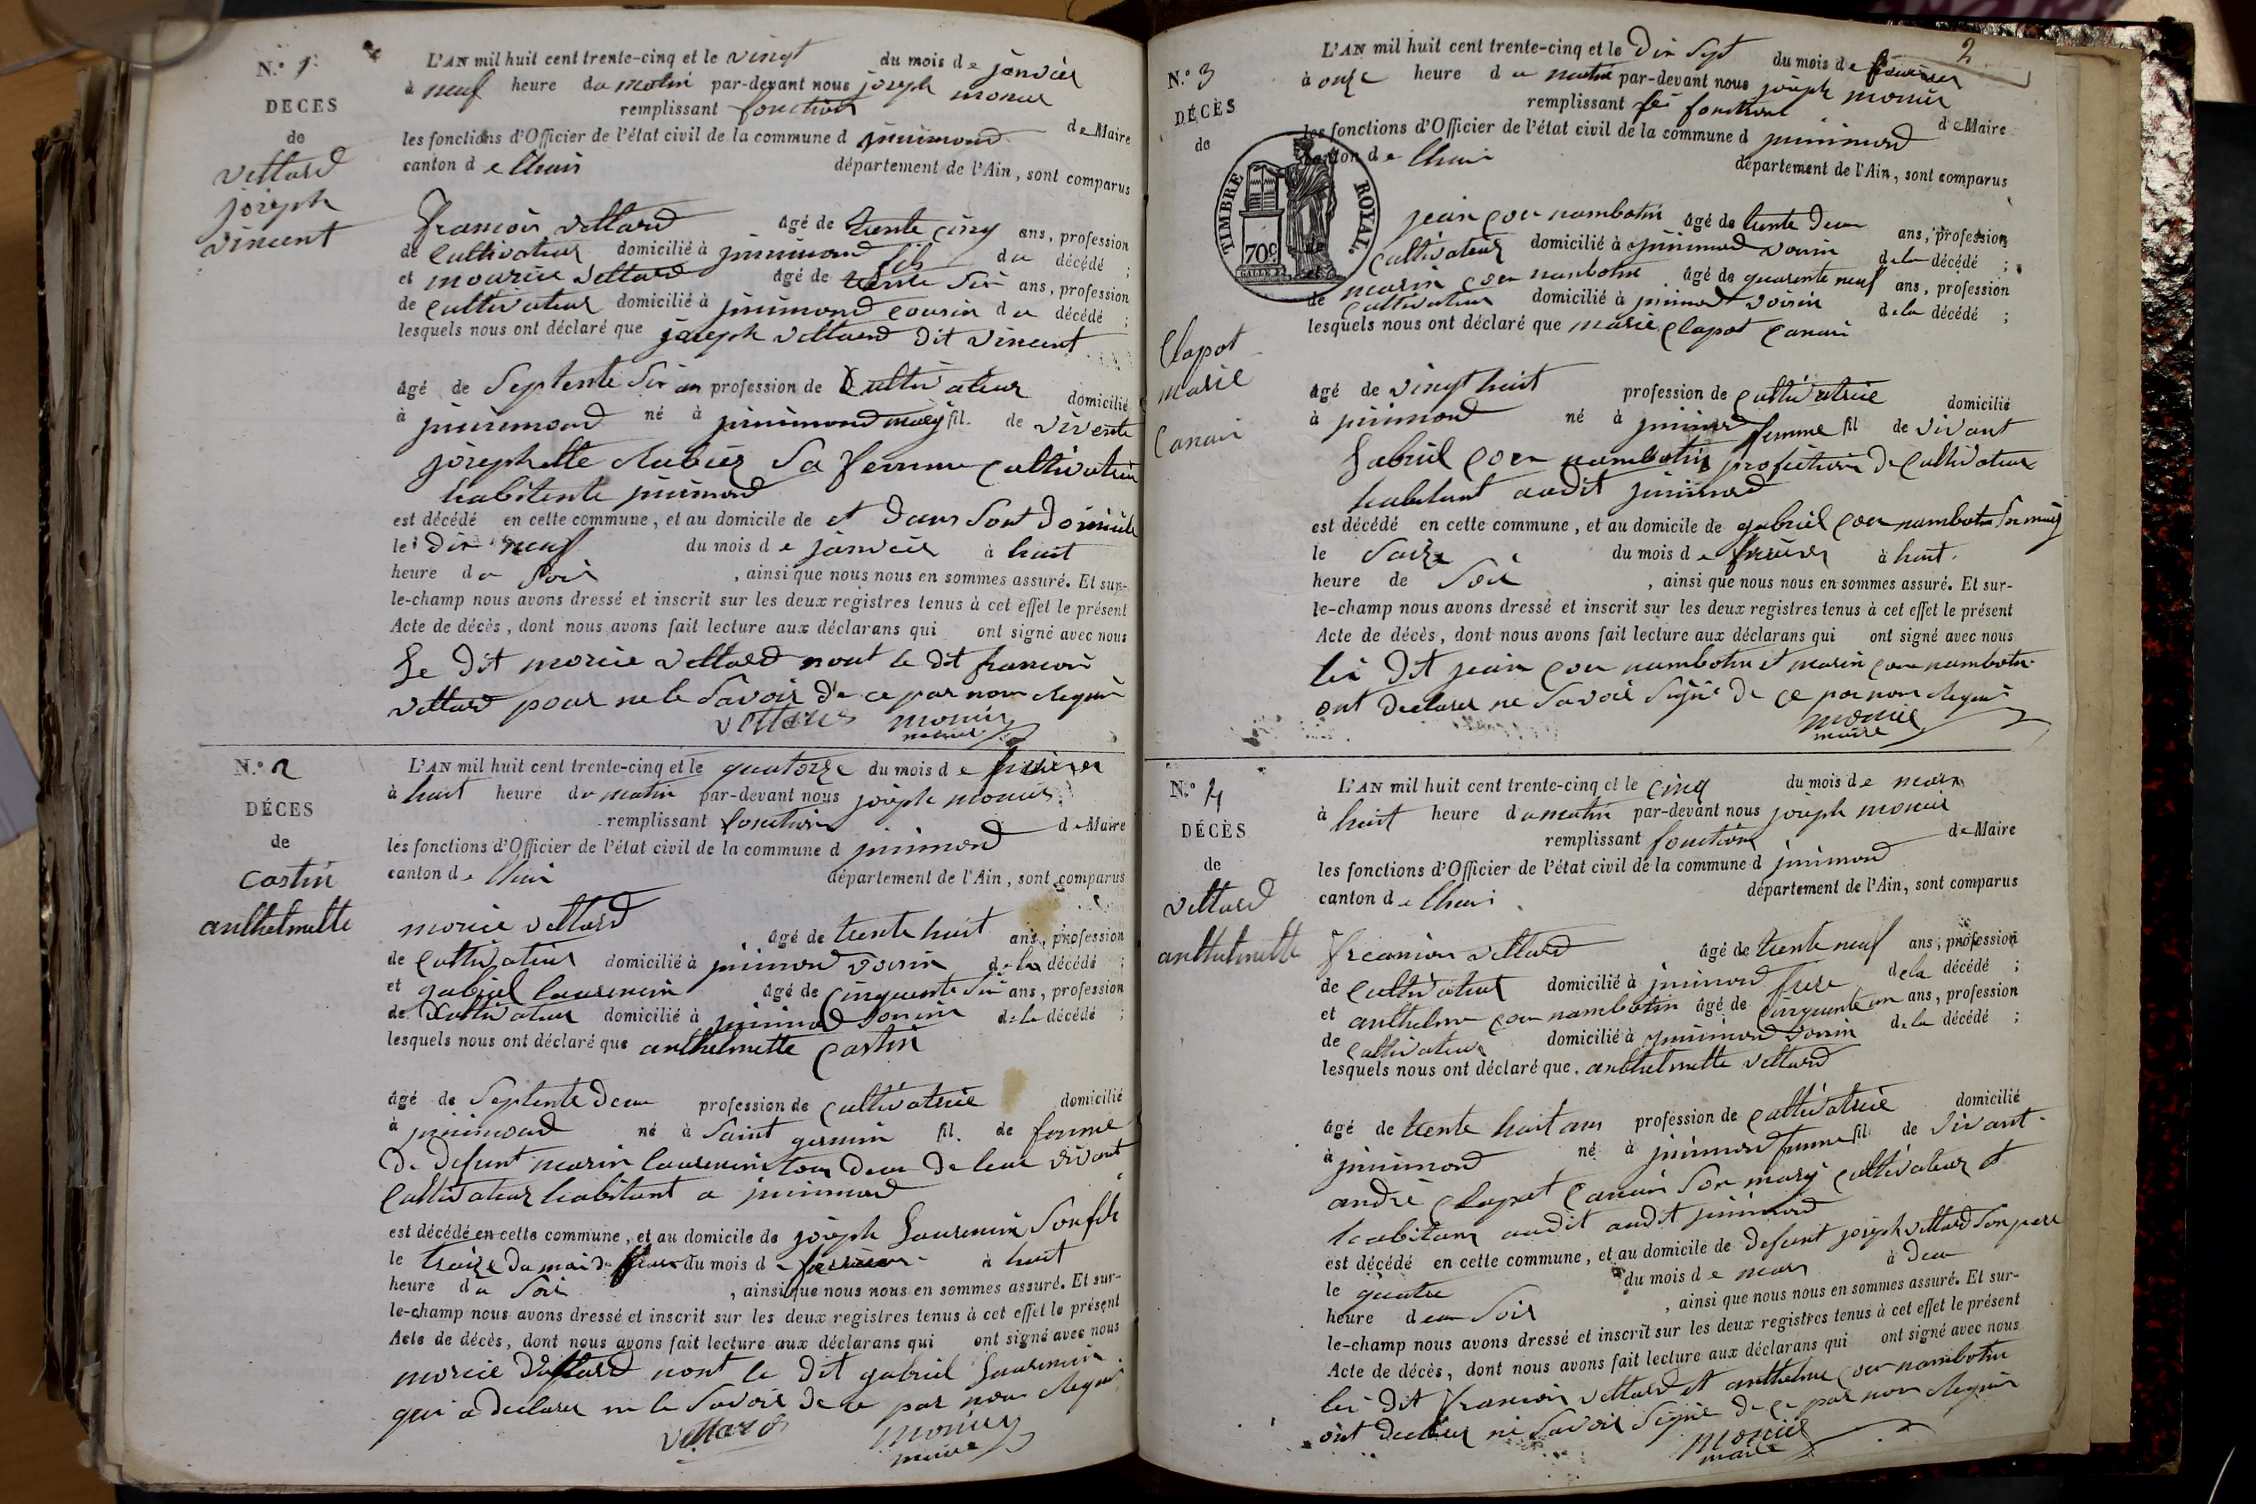 N.º 1
DÉCÈS
de
vettard
joseph
vincent
L'AN mil huit cent trente-cinq et le vingt du mois de janvier
à neuf heure du matin par-devant nous joseph monier
remplissant fonction de Maire
les fonctions d'Officier de l'état civil de la commune d
canton d département de l'Ain, sont comparus
françois vettard âgé de trente cinq ans, profession
de cultivateur domicilié à fils du décédé ;
et mourice vettard âgé de trente six ans, profession
de cultivateur domicilié à cousin du décédé ;
lesquels nous ont déclaré que joseph vettard dit vincent
âgé de septente six an profession de cultivateur domicilié
à né à fil. de vivente
josephette sa femme cultivatrice
habitente
est décédé en cette commune, et au domicile de et dans sont domicile
le dix neuf du mois de janvier à huit
heure du soir , ainsi que nous nous en sommes assuré. Et sur-
le-champ nous avons dressé et inscrit sur les deux registres tenus à cet effet le présent
Acte de décès, dont nous avons fait lecture aux déclarans qui ont signé avec nous
Le dit morice vettard nont le dit francois
vettard pour ne le savoir de ce par nous requis
vettard monier
maire
N.º 2
DÉCES
de
Castin
anthelmette
L'AN mil huit cent trente-cinq et le quatorze du mois de
à huit heure du matin par-devant nous joseph monier
remplissant fonction de Maire
les fonctions d'Officier de l'état civil de la commune d
canton d département de l'Ain, sont comparus
morice vettard âgé de trente huit ans, profession
de cultivateur domicilié à voisin de la décédé ;
et gabriel laurencin âgé de cinquente six ans, profession
de cultivateur domicilié à voisin de la décédé ;
lesquels nous ont déclaré que anthelmette Castin
âgé de septente deux profession de cultivatrice domicilié
à né à saint germin fil. de femme
de defunt marin laurencin tous deux de leur vivant
cultivateur habitant a
est décédé en cette commune, et au domicile de joseph laurencin son fils
le traize du mois de du mois d à huit
heure du soir , ainsi que nous nous en sommes assuré. Et sur-
le-champ nous avons dressé et inscrit sur les deux registres tenus à cet effet le présent
Acte de décès, dont nous avons fait lecture aux déclarans qui ont signé avec nous
morice vettard nont le dit gabriel laurencin
qui a declarer ne le savoir de ce par nous requis
vettard monier
maire
2
N.º 3
DÉCÈS
de
TIMBRE ROYAL.
70c
Clapot
marie
Canari
L'AN mil huit cent trente-cinq et le dix sept du mois de
à onze heure du matin par-devant nous joseph monier
remplissant fonction de Maire
les fonctions d'Officier de l'état civil de la commune d
canton d département de l'Ain, sont comparus
jean nambotin âgé de trente deux ans, profession
cultivateur domicilié à voisin de la décédé ;
marin nambotin âgé de quarente neuf ans, profession
de cultivateur domicilié à voisin de la décédé ;
lesquels nous ont déclaré que marie clapot Canari
âgé de vingt huit profession de cultivatrice domicilié
à né à femme fil de vivant
gabriel nambotin profection de cultivateur
habitant audit
est décédé en cette commune, et au domicile de gabriel nambotin son mary
le saize du mois de à huit
heure de soir , ainsi que nous nous en sommes assuré. Et sur-
le-champ nous avons dressé et inscrit sur les deux registres tenus à cet effet le présent
Acte de décès, dont nous avons fait lecture aux déclarans qui ont signé avec nous
les dit jean nambotin et marin nambotin
ont declarer ne savoir signé de ce par nous requis
monier
maire
N.º 4
DÉCÈS
de
vettard
anthelmette
L'AN mil huit cent trente-cinq et le cinq du mois de mars
à huit heure du matin par-devant nous joseph monier
remplissant fonction de Maire
les fonctions d'Officier de l'état civil de la commune d
canton d département de l'Ain, sont comparus
vettard âgé de trente neuf ans, profession
de cultivateur domicilié à frere de la décédé ;
et anthelme nambotin âgé de cinquente un ans, profession
de cultivateur domicilié à voisin de la décédé ;
lesquels nous ont déclaré que anthelmette vettard
âgé de trente huit ans profession de cultivatrice domicilié
à né à femme fil de vivant
andré clapot Canari son mary cultivateur et
habitant audit audit
est décédé en cette commune, et au domicile de defunt joseph vettard son pere
le quatre du mois de mars à deux
heure du soir , ainsi que nous nous en sommes assuré. Et sur-
le-champ nous avons dressé et inscrit sur les deux registres tenus à cet effet le présent
Acte de décès, dont nous avons fait lecture aux déclarans qui ont signé avec nous
les dit francois vettard et anthelme nambotin
ont declarer ne savoir signé de ce par nous requis
monier
maire